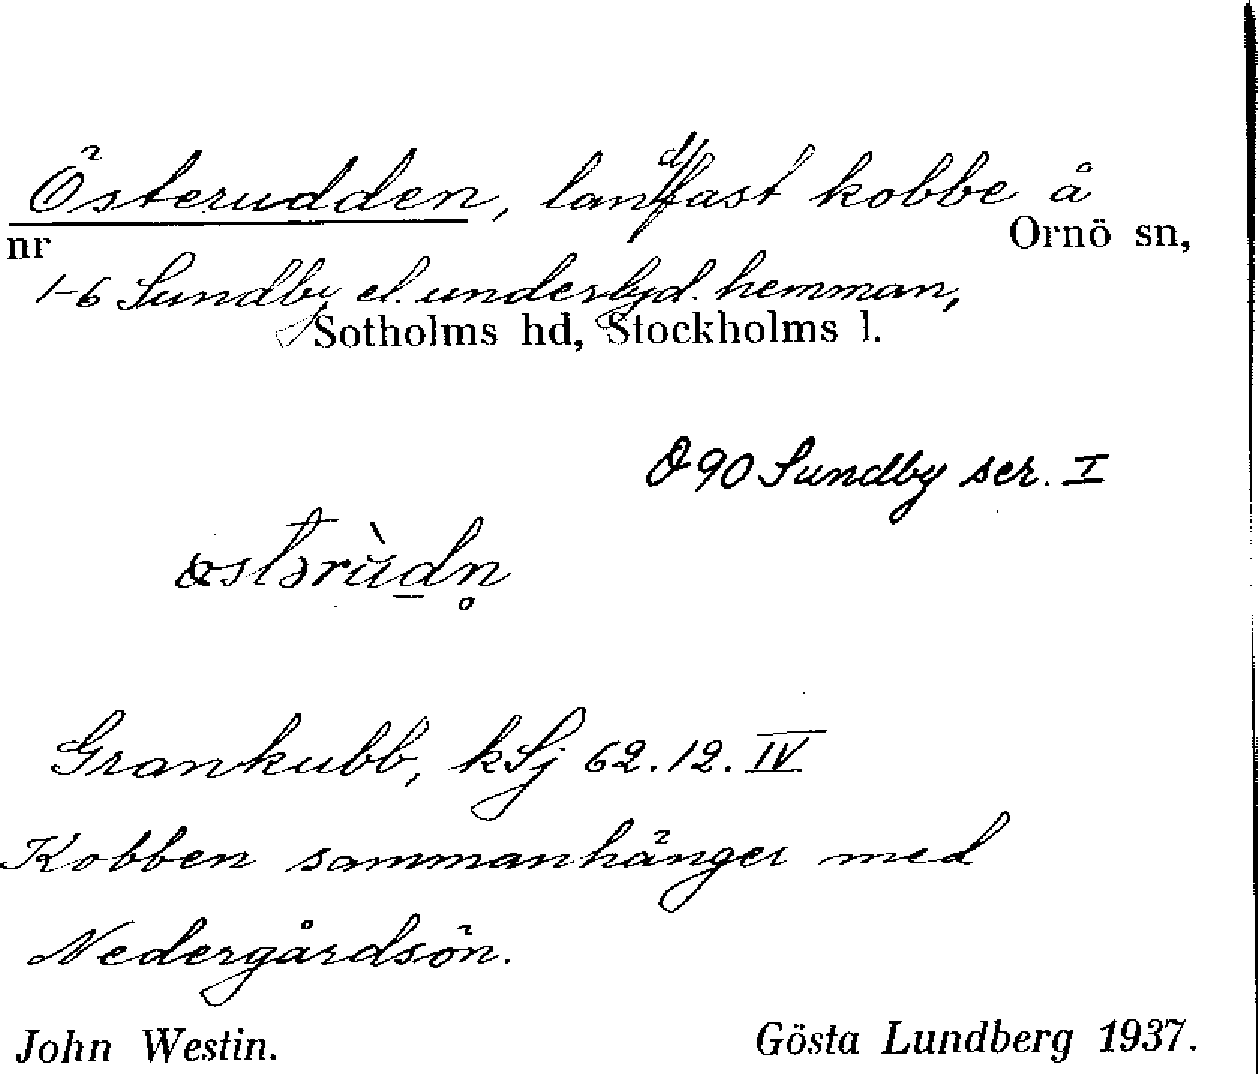 Österudden, landfast kobbe å
nr Ornö sn,
1-6 Sundby el. underlyd. hemman,
Sotholms hd, Stockholms l.
090 Sundby ser. I
Grankubb, kSj 62.12. IV
Kobben sammanhänger med
Nedergårdsön.
John Westin. Gösta Lundberg 1937.